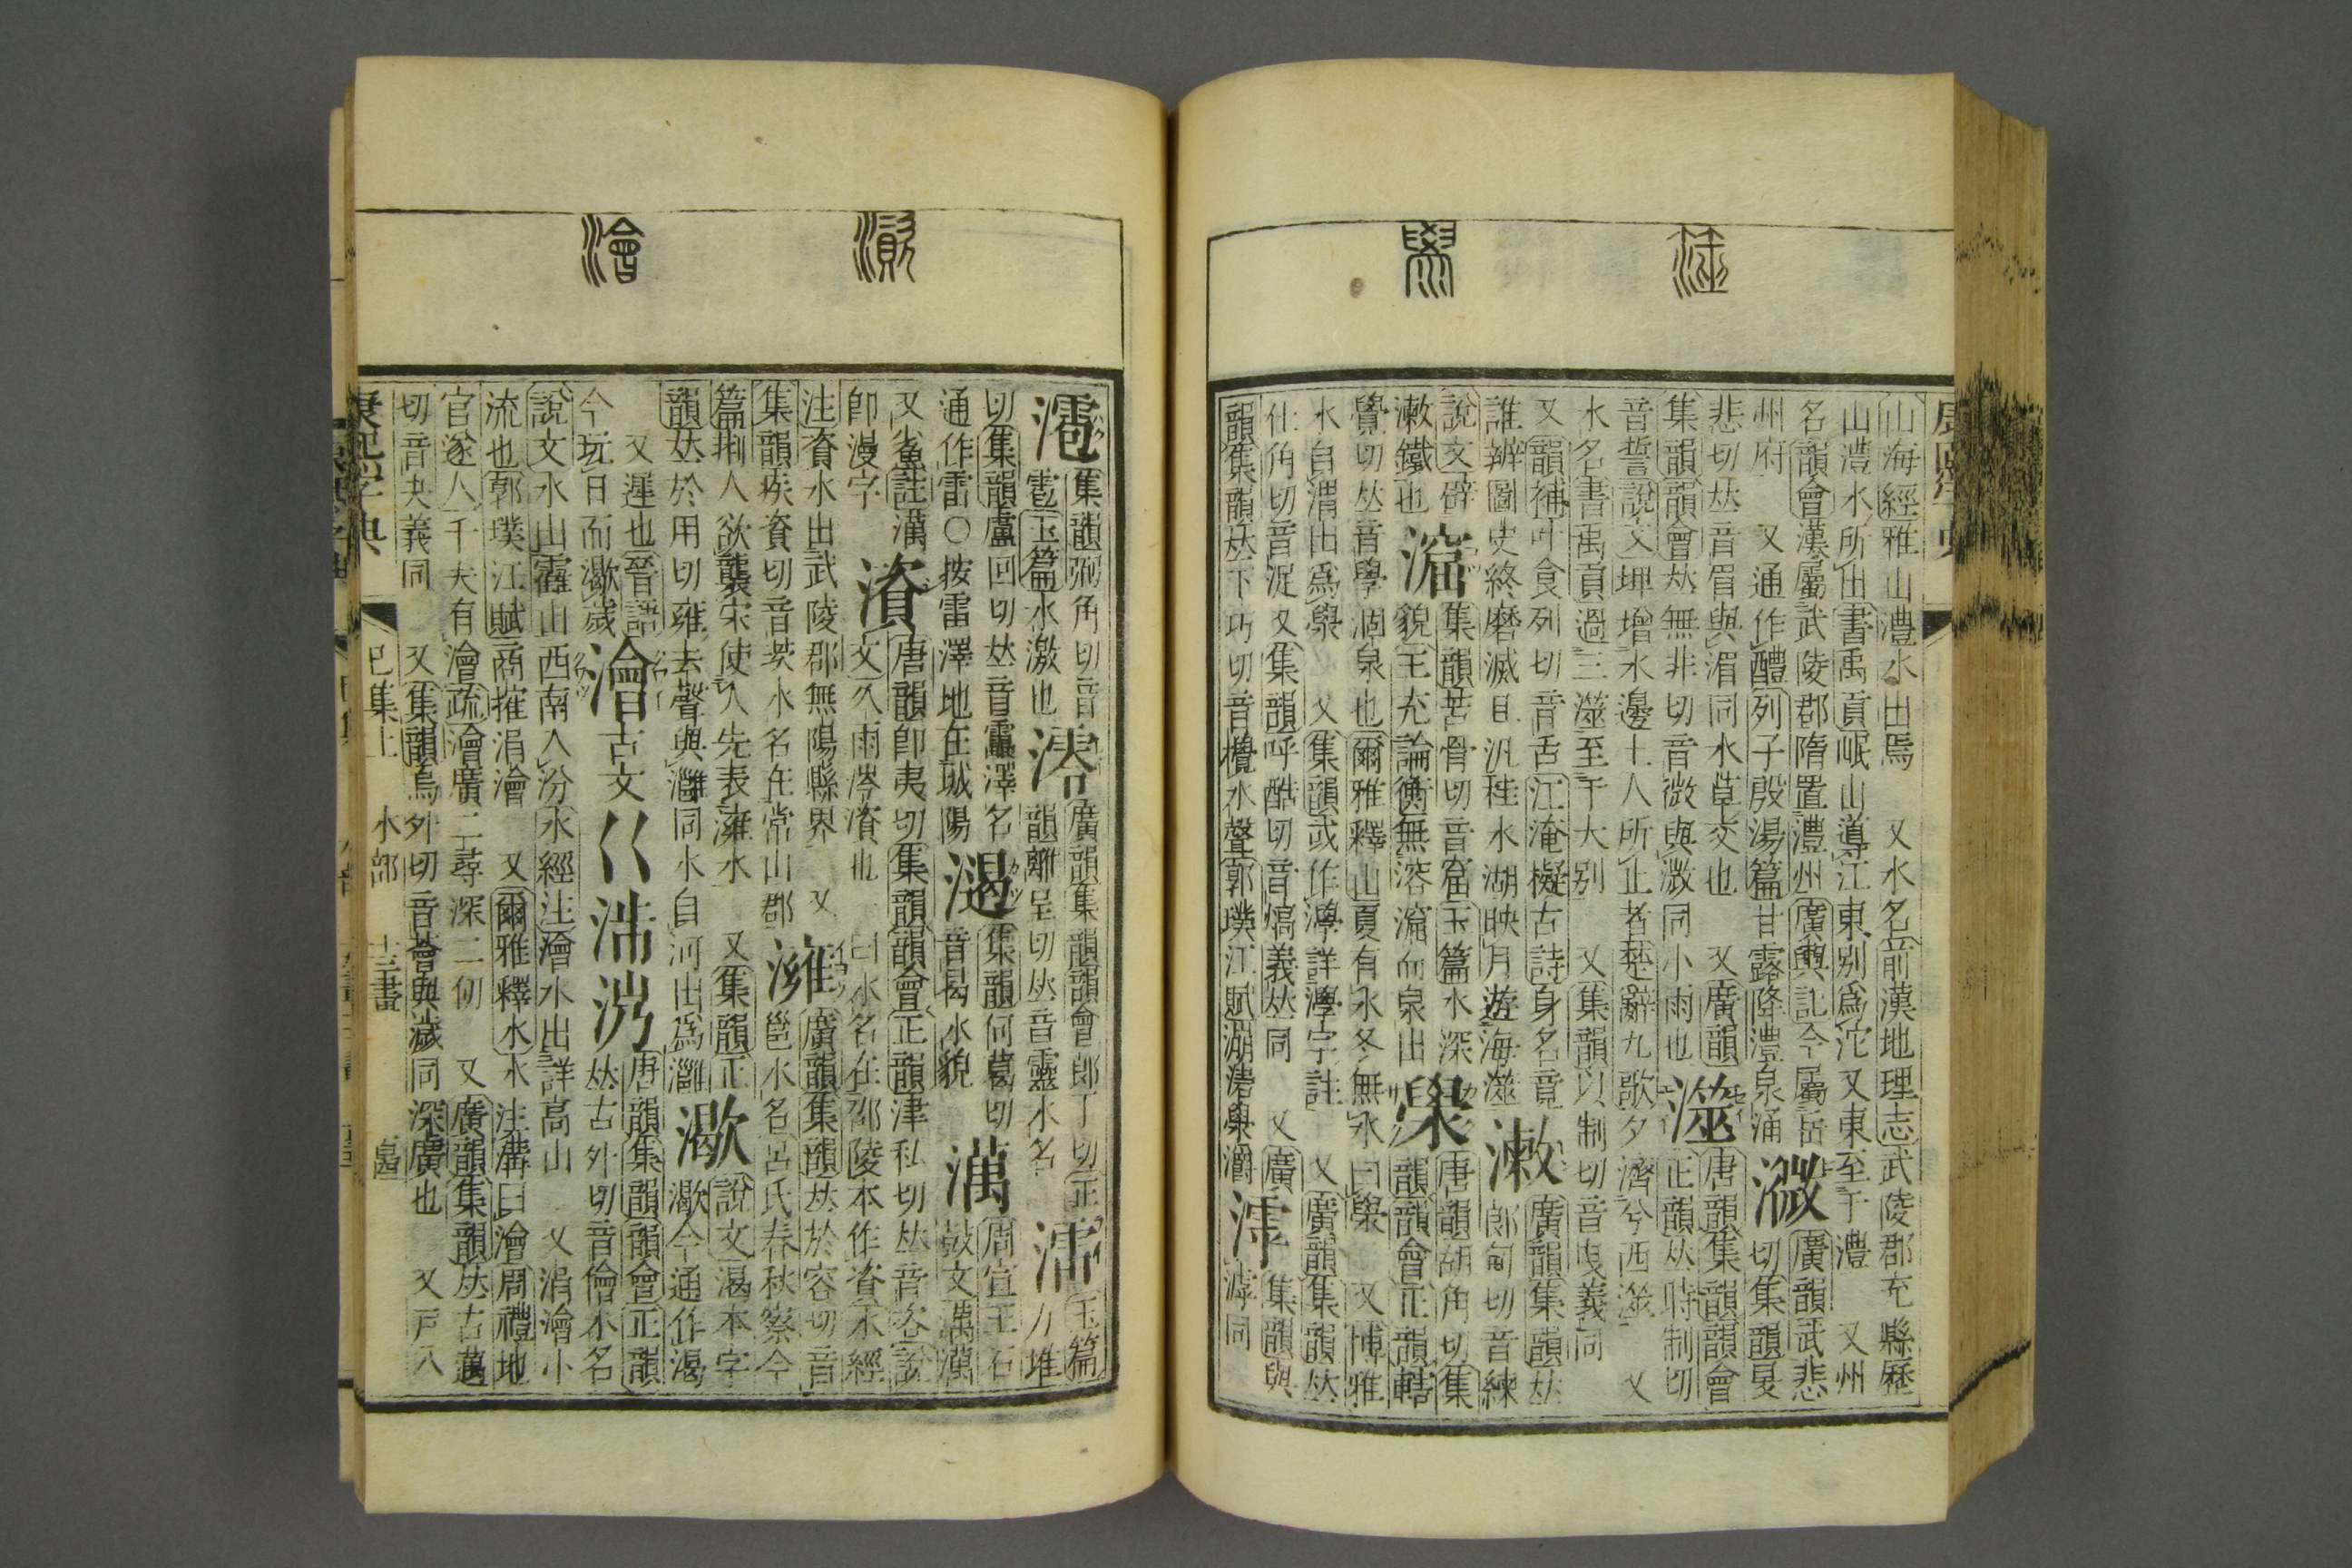 山海經雅山澧水出焉 又水名前漢地理志武陵郡充縣歷
山澧水所出書禹貢岷山導江東別爲沱又東至于澧 又州
名韻會漢屬武陵郡隋置澧州廣輿記今屬岳
州府 又通作醴列子殷湯篇甘露降澧泉涌
溦廣韻武悲
切集韻旻
悲切𠀤音眉與湄同水草交也 又廣韻
集韻韻會𠀤無非切音微與溦同小雨也
澨唐韻集韻韻會
正韻𠀤時制切
音誓說文埤增水邊土人所止者楚辭九歌夕濟兮西澨 又
水名書禹貢過三澨至于大別 又集韻以制切音曳義同
又韻補叶食列切音舌江淹擬古詩身名竟
誰辨圖史終磨滅且汎桂水湖映月遊海澨
潄廣韻集韻𠀤
郞甸切音練
說文辟
潄鐵也
滵集韻苦骨切音窟玉篇水深
貌王充論衡無溶滵而泉出
澩唐韻胡角切集
韻韻會正韻轄
覺切𠀤音學涸泉也爾雅釋山夏有水冬無水曰澩 又博雅
水自渭出爲澩 又集韻或作㶅詳㶅字註 又廣韻集韻𠀤
仕角切音浞 又集韻呼酷切音熇義𠀤同 又廣
韻集韻𠀤下巧切音攪水聲郭璞江賦湖澩㶕
滹集韻與
滹同
集韻弼角切音
雹玉篇水激也
澪廣韻集韻韻會郞丁切正
韻離呈切𠀤音靈水名
㵢玉篇力堆
切集韻盧回切𠀤音靁澤名
通作雷○按雷澤地在城陽
集韻何葛切
音曷水貌
澫周宣王石
鼓文澫澫
又鯊註澫
卽漫字
澬唐韻卽夷切集韻韻會正韻津私切𠀤音咨說
文久雨涔澬也 一曰水名在邵陵本作資水經
注資水出武陵郡無陽縣界 又
集韻疾資切音茨水名在常山郡
澭廣韻集韻𠀤於容切音
邕水名呂氏春秋察今
篇荆人欲襲宋使人先表澭水 又集韻正
韻𠀤於用切雍去聲與灉同水自河出爲灉
㵣說文渴本字
㵣今通作渴
又遲也晉語
今玩日而㵣歲
澮古文巜唐韻集韻韻會正韻
𠀤古外切音儈水名
說文水出霍山西南入汾水經注澮水出詳高山 又涓澮小
流也郭璞江賦商搉涓澮 又爾雅釋水水注溝曰澮周禮地
官遂人千夫有澮疏澮廣二尋深二仞 又廣韻集韻𠀤古邁
切音夬義同 又集韻烏外切音薈與濊同深廣也 又戸八
康熙字典 巳集上 水部 十三畫